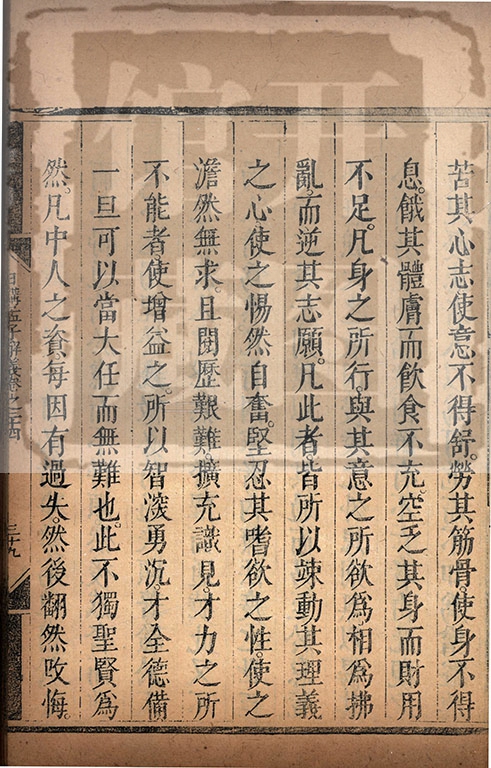 苦其心志使意不得舒。勞其筋骨使身不得
息。餓其體膚而飲食不充。空乏其身而財用
不足。凡身之所行。與其意之所欲爲相爲拂
亂。而逆其志願。凡此者皆所以竦動其理義
之心使之惕然自奮。堅忍其嗜欲之性。使之
澹然無求。且閱歷艱難。擴充識見。才力之所
不能者。使增益之。所以智深勇沉才全德備
一旦可以當大任而無難也。此不獨聖賢爲
然。凡中人之資。每因有過失。然後翻然改悔。
日講孟子解義卷之二十四
三十九